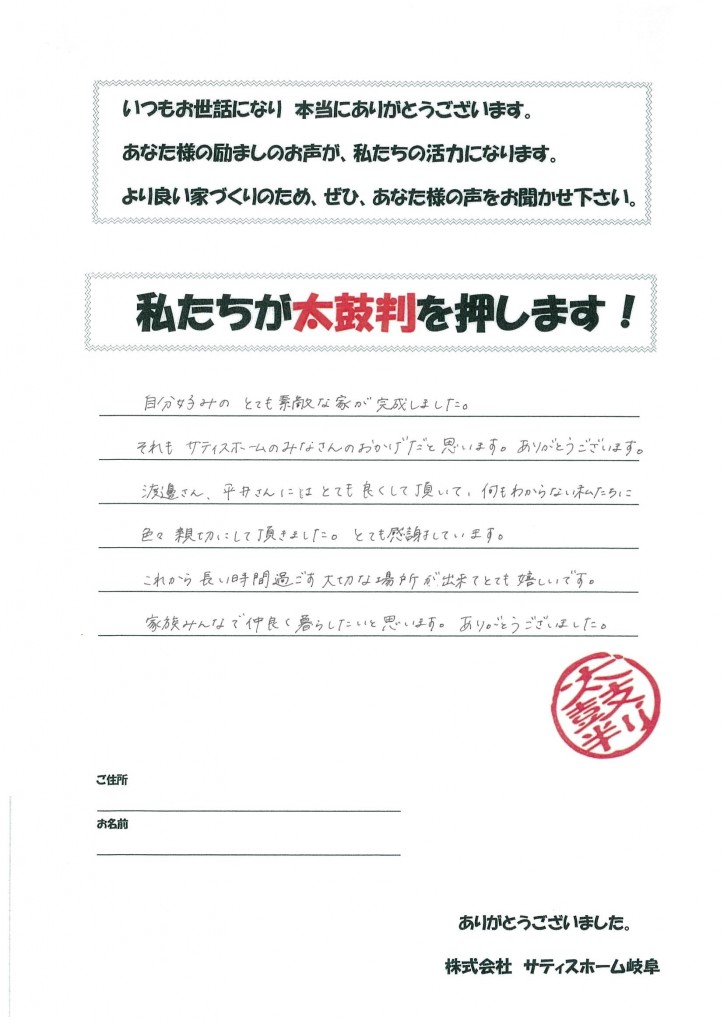 いつもお世話になり 本当にありがとうございます。
あなた様の励ましのお声が、私たちの活力になります。
より良い家づくりのため、ぜひ、あなた様の声をお聞かせ下さい。
私たちが太鼓判を押します！
自分好みの とても素敵な家が 完成しました。
それも サティスホームのみなさんのおかげだと思います。ありがとうございます。
渡邊さん、平井さんにはとても良くして頂いて、何もわからない私たちに
色々親切にして頂きました。とても感謝しています。
これから長い時間過ごす大切な場所が出来てとても嬉しいです。
家族みんなで仲良く暮らしたいと思います。ありがとうございました。
太鼓判
ご住所
お名前
ありがとうございました。
株式会社 サティスホーム岐阜